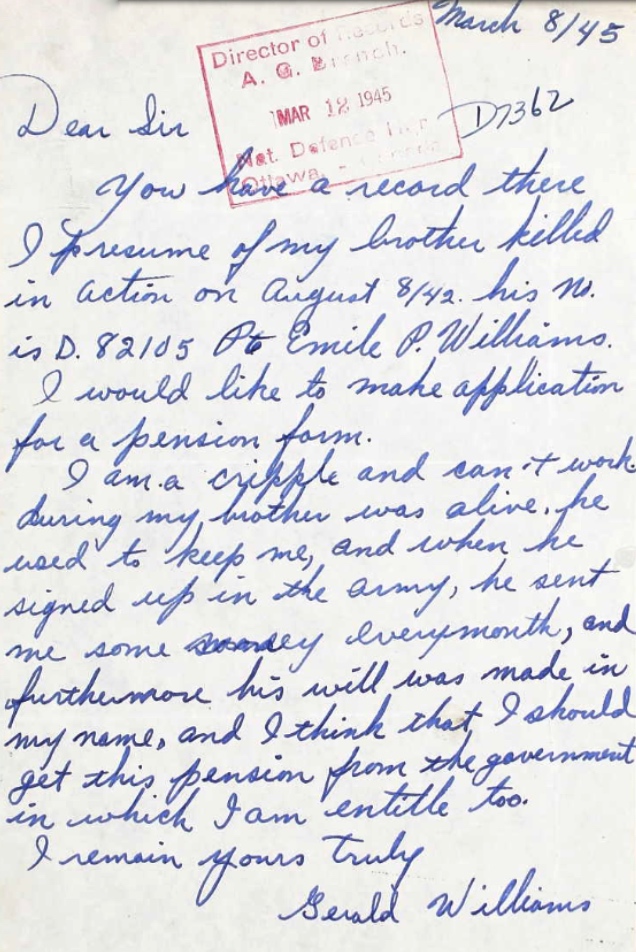 March 8/45
Director of Records
A. G. Branch.
MAR 12 1945
Nat. Defence
Ottawa, - Canada
Dear Sir
D7362
You have a record there
I presume of my brother killed
in action on August 8/42. his No.
is D. 82105 Pte Emile P. Williams.
I would like to make application
for a pension form.
I am a cripple and can't work
during my brother was alive, he
used to keep me, and when he
signed up in the army, he sent
me some money everymonth, and
furthermore his will was made in
my name, and I think that I should
get this pension from the government
in which I am entitle too.
I remain yours truly
Gerald Williams